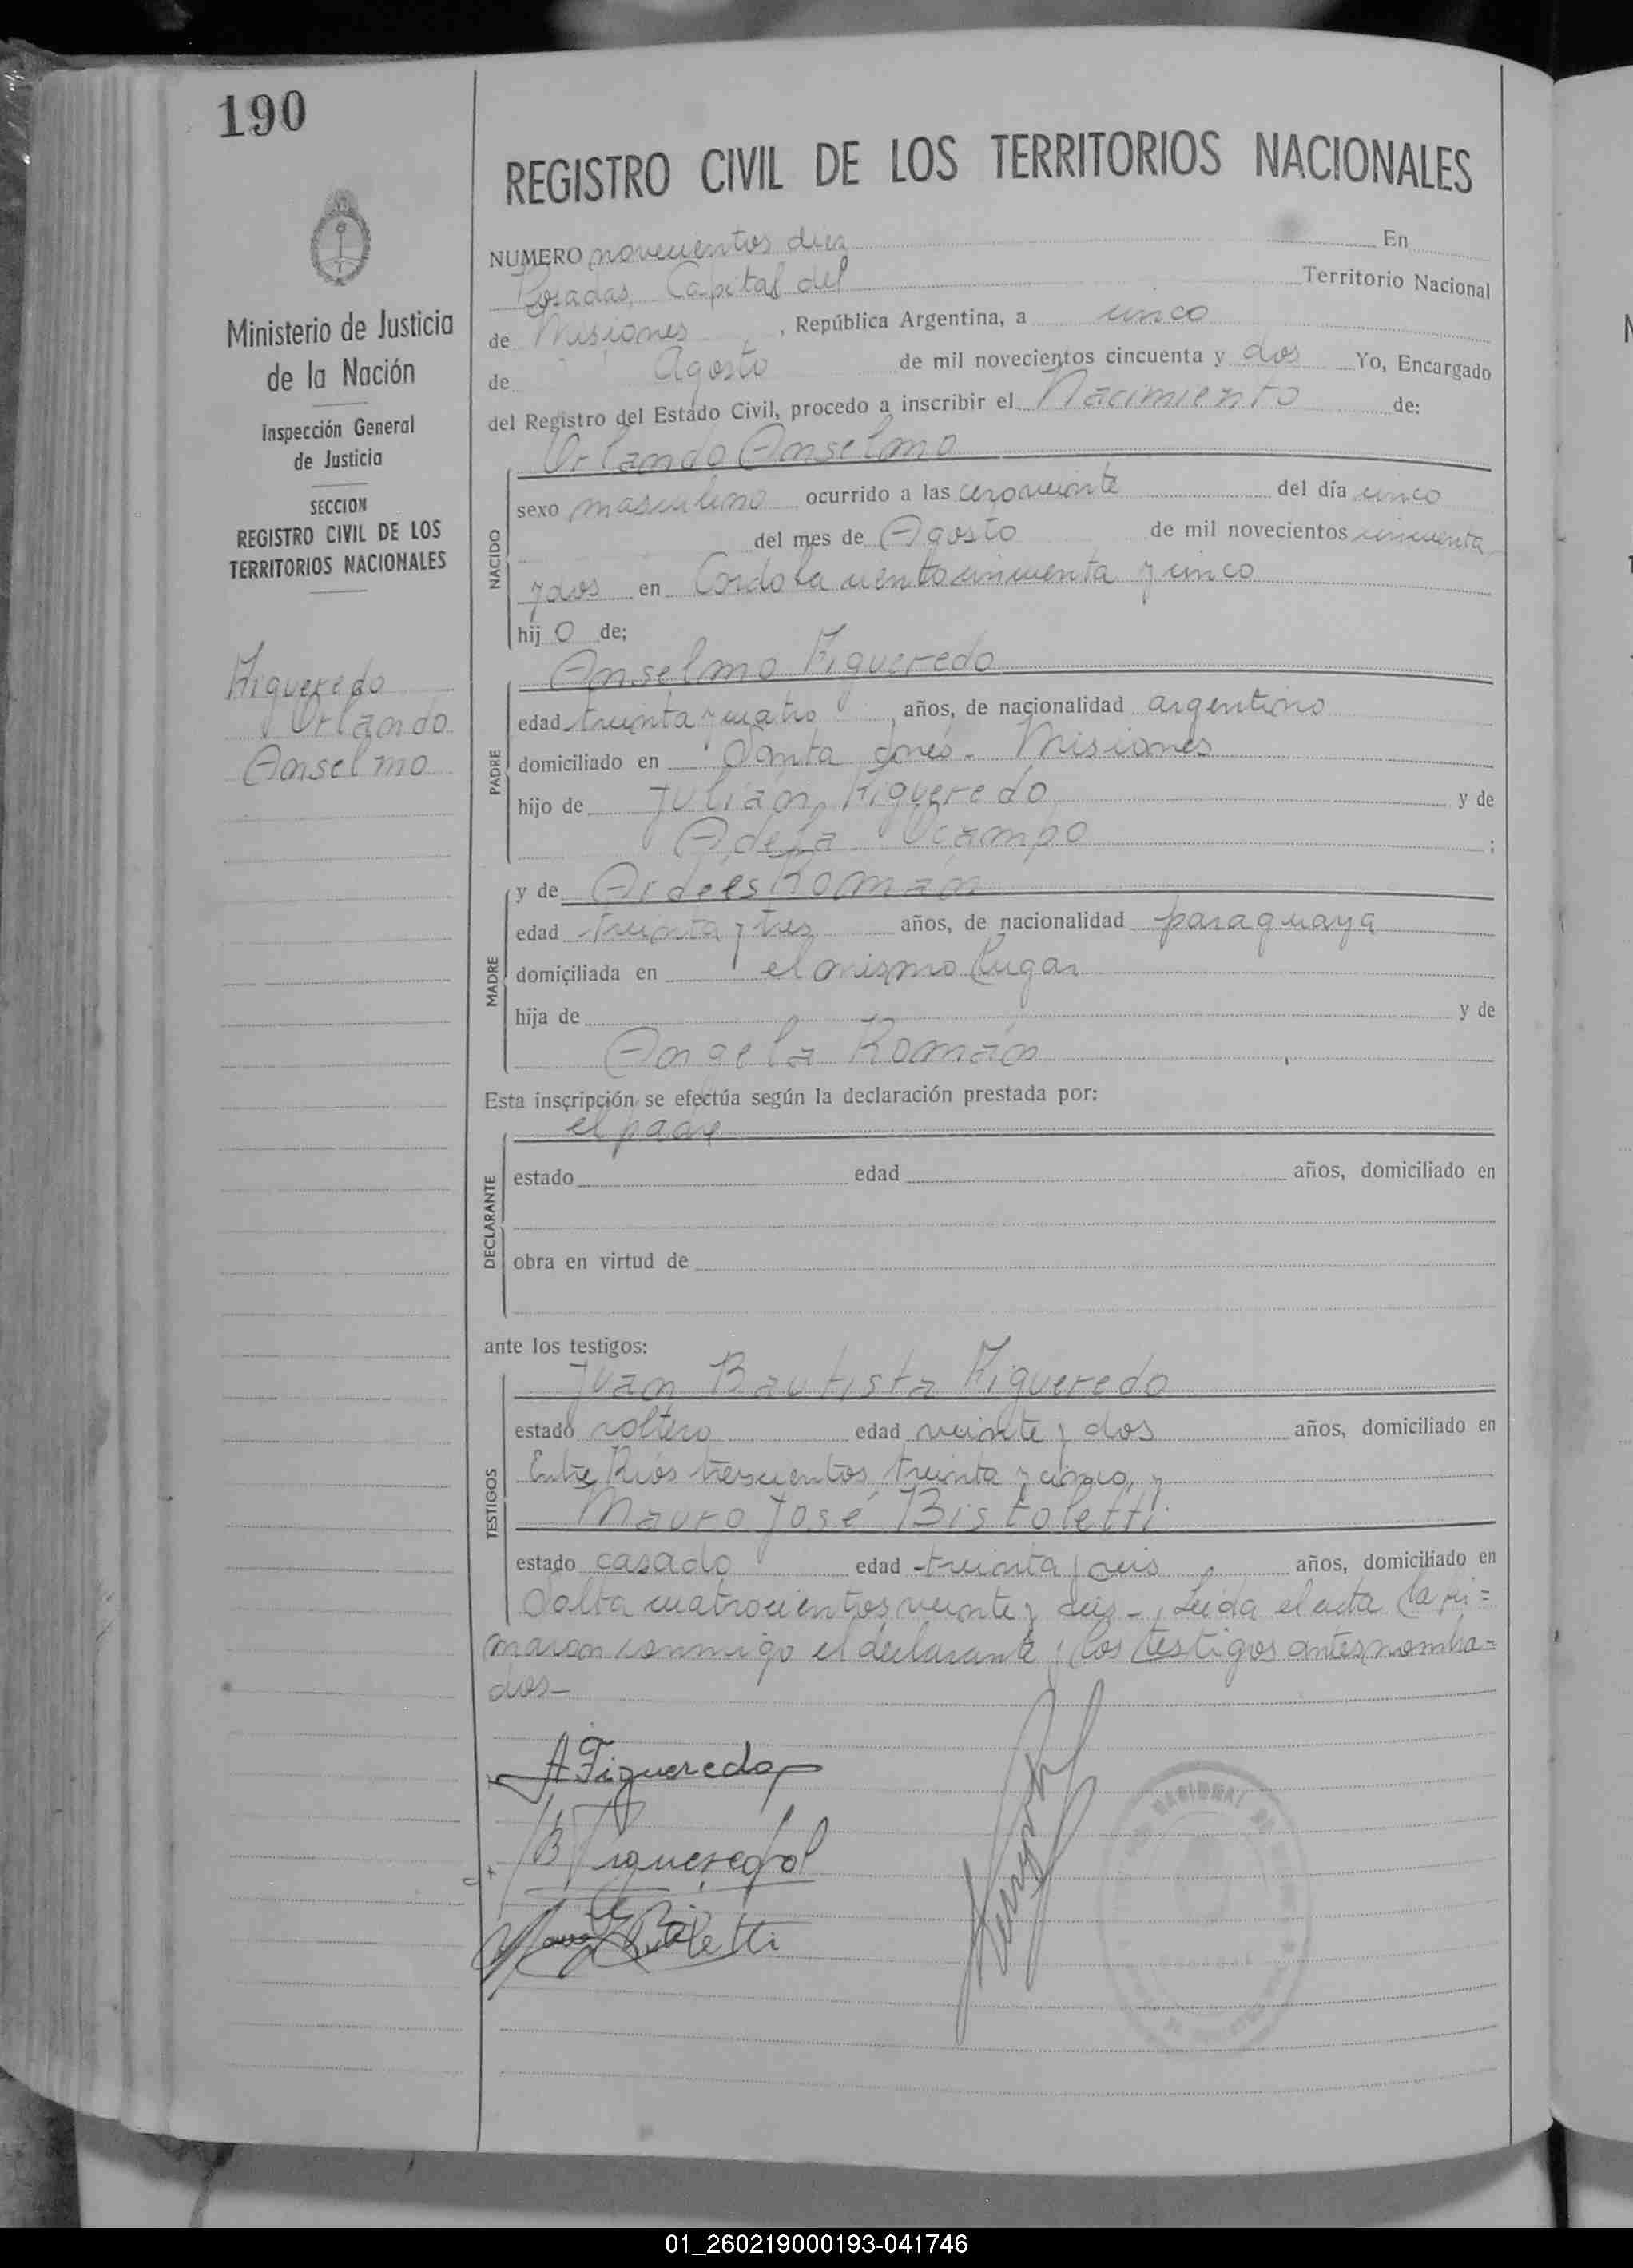 190
REGISTRO CIVIL DE LOS TERRITORIOS NACIONALES
Ministerio de Justicia
de la Nación
Inspección General
de Justicia
SECCION
REGISTRO CIVIL DE LOS
TERRITORIOS NACIONALES
Figueredo
Orlando
Anselmo
NUMERO novecientos diez En
Posadas, Capital del Territorio Nacional
de Misiones, República Argentina, a cinco
de Agosto de mil novecientos cincuenta y dos Yo, Encargado
del Registro del Estado Civil, procedo a inscribir el Nacimiento de:
NACIDO
Orlando Anselmo
sexo masculino ocurrido a las cero veinte del día cinco
del mes de Agosto de mil novecientos cincuenta
y dos en Cordoba ciento cincuenta y cinco
hij o de;
PADRE
Anselmo Figueredo
edad treinta y cuatro años, de nacionalidad argentino
domiciliado en Santa Inés - Misiones
hijo de Julián Figueredo y de
Adela Ocampo ;
MADRE
y de Román
edad treinta y tres años, de nacionalidad paraguaya
domiciliada en el mismo lugar
hija de y de
Angela Román
Esta inscripción se efectúa según la declaración prestada por:
DECLARANTE
el padre
estado edad años, domiciliado en
obra en virtud de
ante los testigos:
TESTIGOS
Juan Bautista Figueredo
estado soltero edad veinte y dos años, domiciliado en
Entre Rios trescientos treinta y cinco, y
Mauro José Bistoletti
estado casado edad treinta y seis años, domiciliado en
Salta cuatrocientos veinte y seis - Leida el acta la fir=
maron conmigo el declarante y los testigos antes nombra=
dos-
A Figueredo
JB Figueredo
01_260219000193-041746